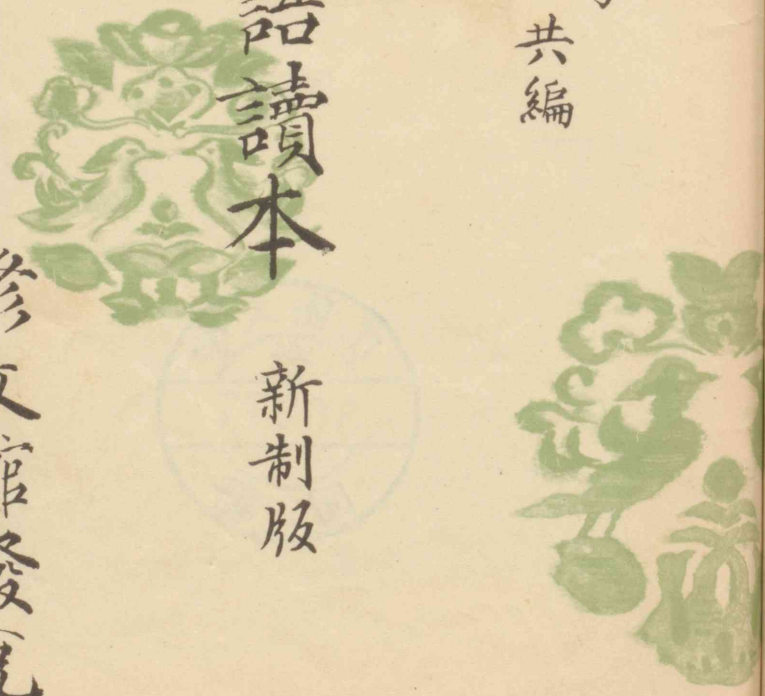 共編
語讀本 新制版
修文館發兌